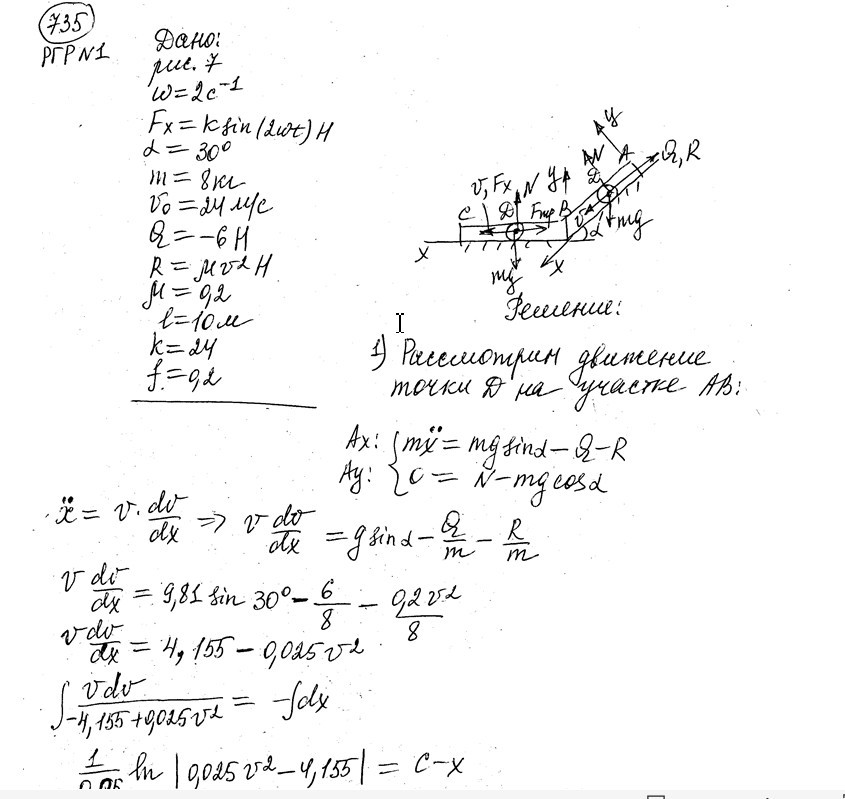 735
РГР N1
Дано:
рис. 7
ω=2c⁻¹
Fx = k sin(2ωt) Н
α = 30°
m = 8кг
v₀ = 24 м/с
Q = -6 Н
R = μv² Н
μ = 0,2
l = 10 м
k = 24
f = 0,2
y
N A Q, R
v, Fx N y D
C D Fтр B v α mg
x mg x
Решение:
1) Рассмотрим движение
точки D на участке AB:
Ax: { mẍ = mg sinα - Q - R
Ay: { 0 = N - mg cosα
ẍ = v · dv/dx => v dv/dx = g sinα - Q/m - R/m
v dv/dx = 9,81 sin 30° - 6/8 - 0,2v²/8
v dv/dx = 4,155 - 0,025v²
∫ vdv/(-4,155+0,025v²) = -∫dx
1/0,05 ln |0,025v² - 4,155| = C - x